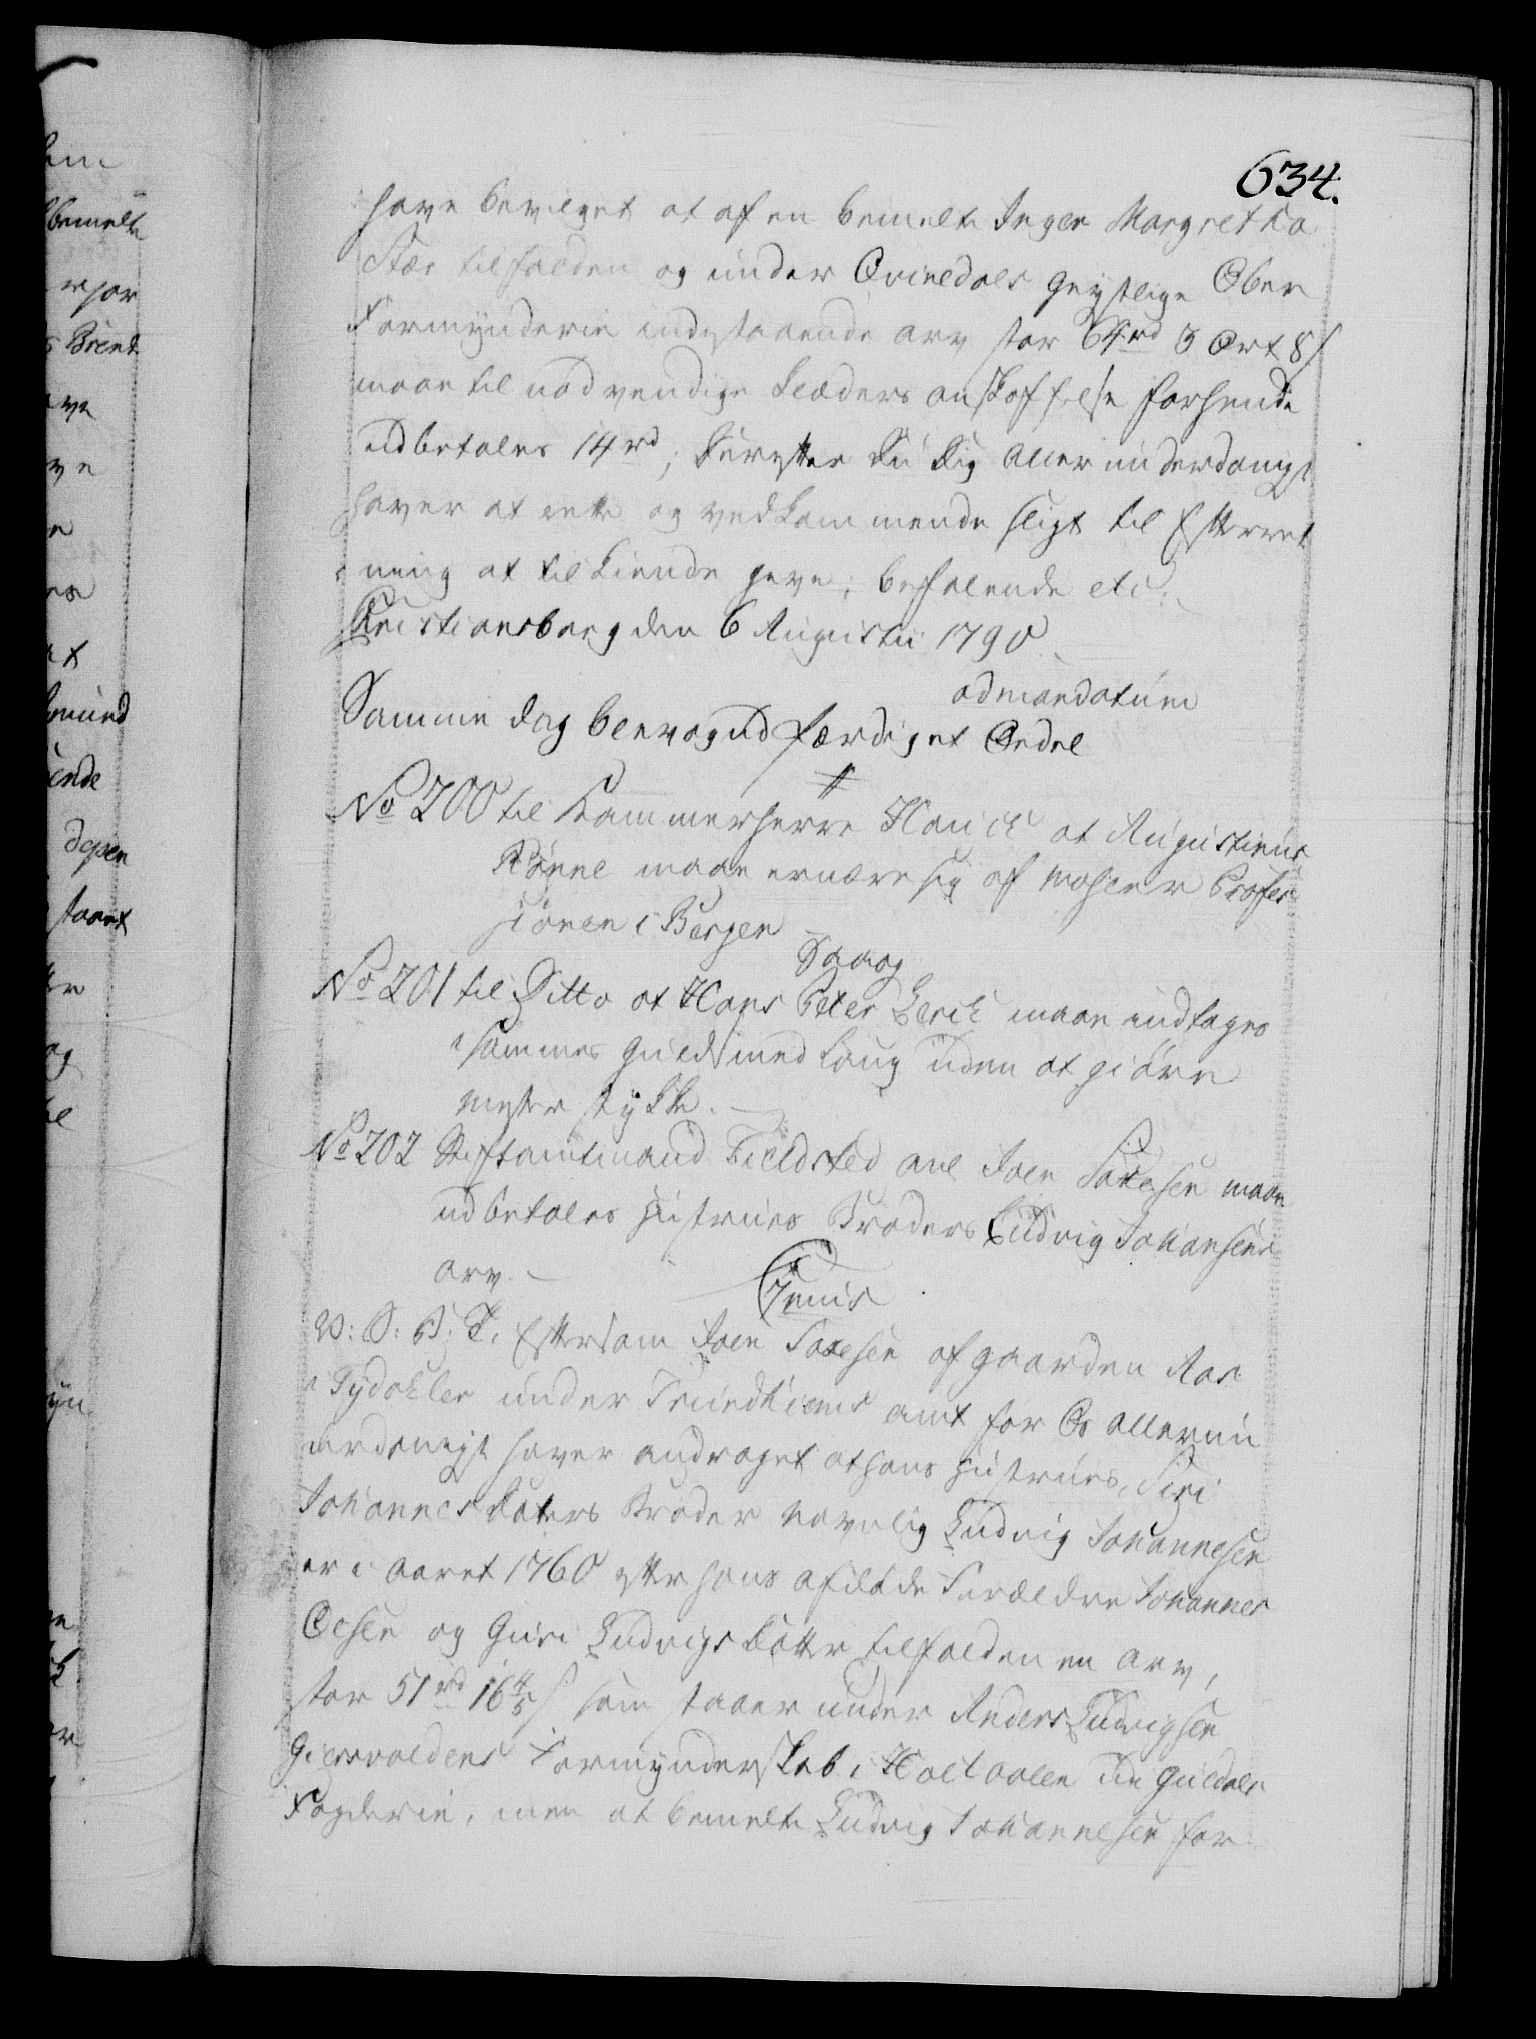 634.
have bevilget at af en bemelte Inger Margretha
Stær tilfalden og under Qvinedals Geystlige Ober
Formynderie indestaaende arv stor 64 rd 3 Ort 8 s
maae til nødvendige Klæders anskaffelse forhende
udbetales 14 rd; derefter Du dig allerunderdanigst
haver at rette og vedkommende sligt til Efterret
ning at tilkiende give; befalende etc.
Christiansborg den 6 Augustii 1790
ad mandatum
Samme dag blev og udfærdiget Ordre
No 200 til Kammerherre Hauch at Augustinus
Rønne maae ernære sig af maler Profes
sionen i Bergen
Daag
No 201 til Ditto at Hans Peter Lerch maae indtages
i sammes Guldsmed Laug uden at giøre
Mester stykke.
No 202 Stiftamtmand Fieldsted anl Joen Saxesen maae
udbetales Hustrues Broders Ludvig Johansens
arv.
Genis
V: G: B: T. Eftersom Joen Saxesen af gaarden Aas
i Tydalen under Trundhiems amt for Os allerun
derdanigst haver andraget at hans Hustrues, Siri
Johannesdaters Broder navnlig Ludvig Johannesen
er i aaret 1760 efter hans afdøde Forældre Johannes
Olsen og Guri Ludvigsdatter tilfalden en arv,
stor 51 rd 16 4/5 s som staaer under Anders Ludvigsen
Giersvoldens Formynderskab i Holtaalen udi Guldals
Fogderie, men at bemelte Ludvig Johannesen for